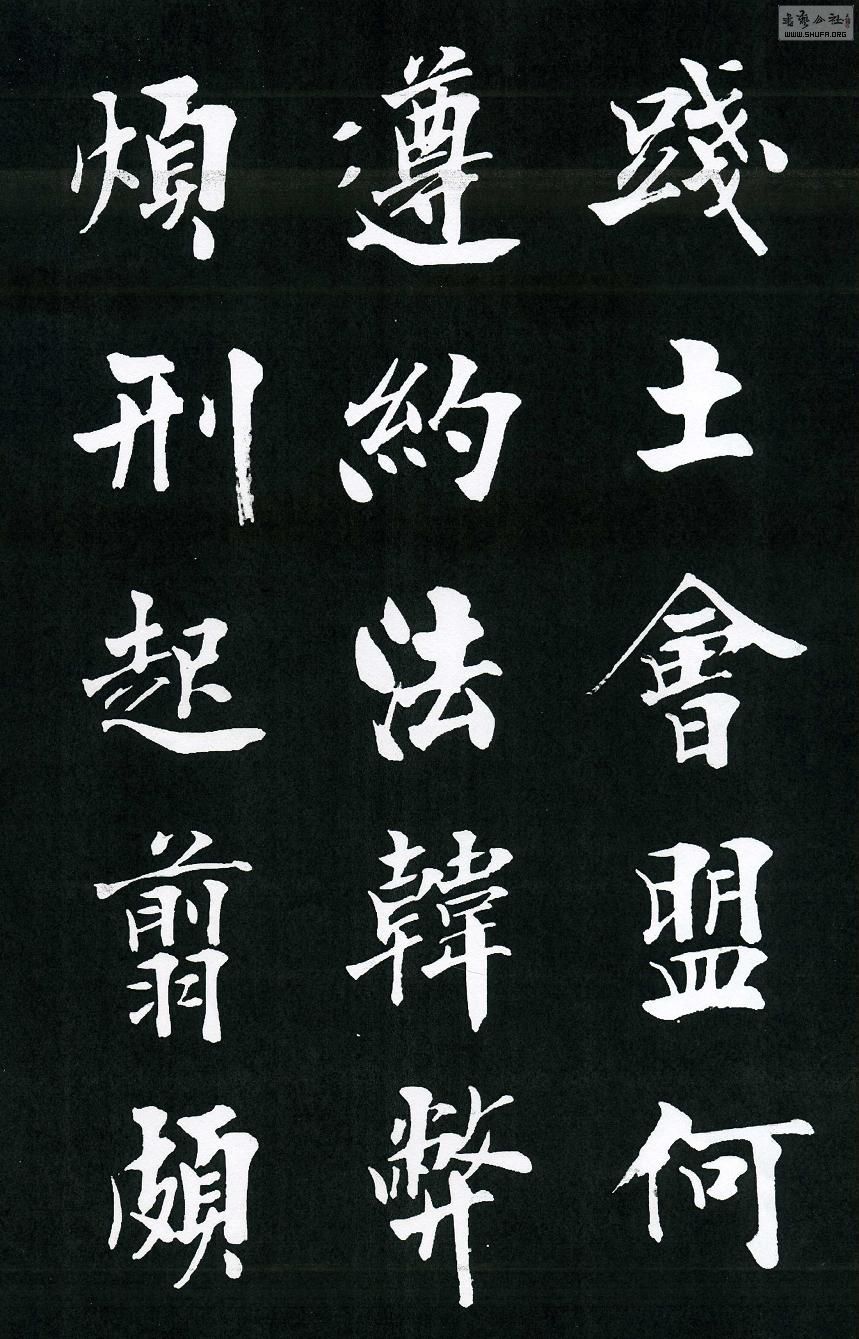 踐土會盟何
遵約法韓弊
煩刑起翦頗
WWW.SHUFA.ORG